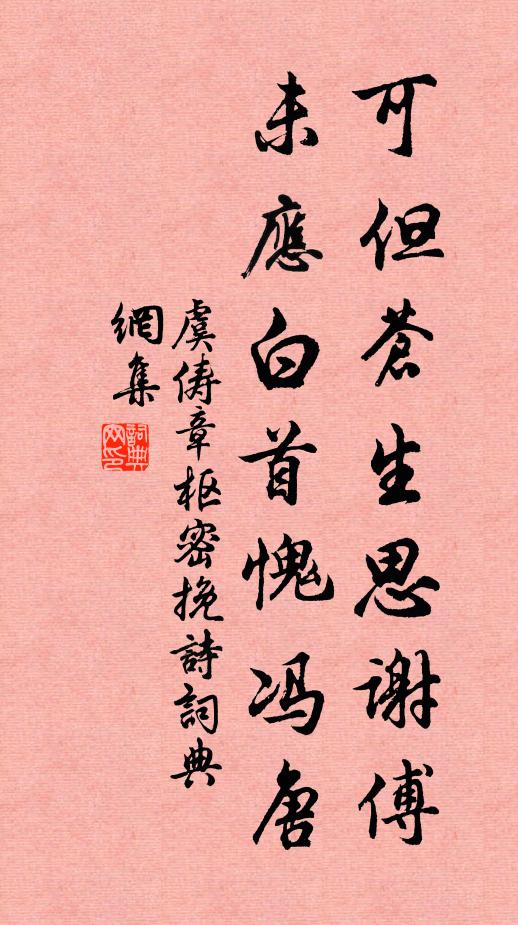 可但苍生思谢傅
未應白首愧冯唐
虞俦章枢密挽詩詞典
網集
詞典
网印